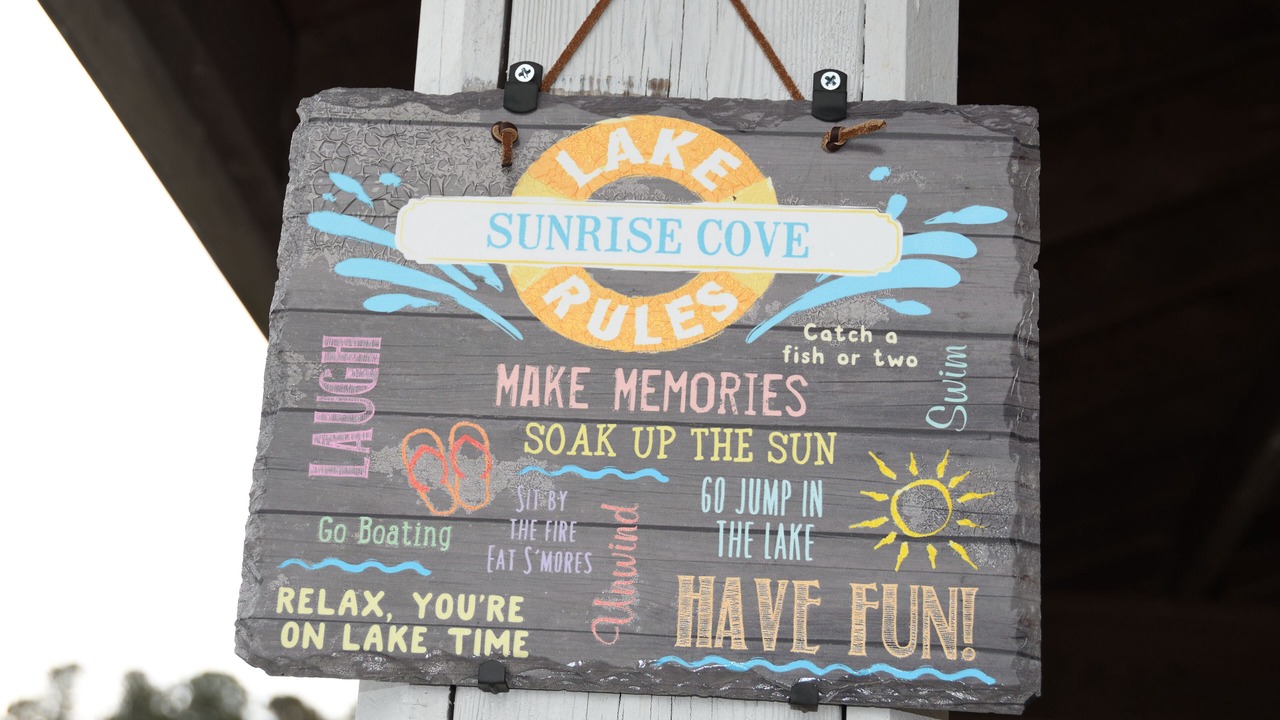 LAKE
SUNRISE COVE
RULES
Catch a
fish or two
Swim
LAUGH
MAKE MEMORIES
SOAK UP THE SUN
Go Boating
SIT BY
THE FIRE
EAT S'MORES
Unwind
GO JUMP IN
THE LAKE
RELAX, YOU'RE
ON LAKE TIME
HAVE FUN!